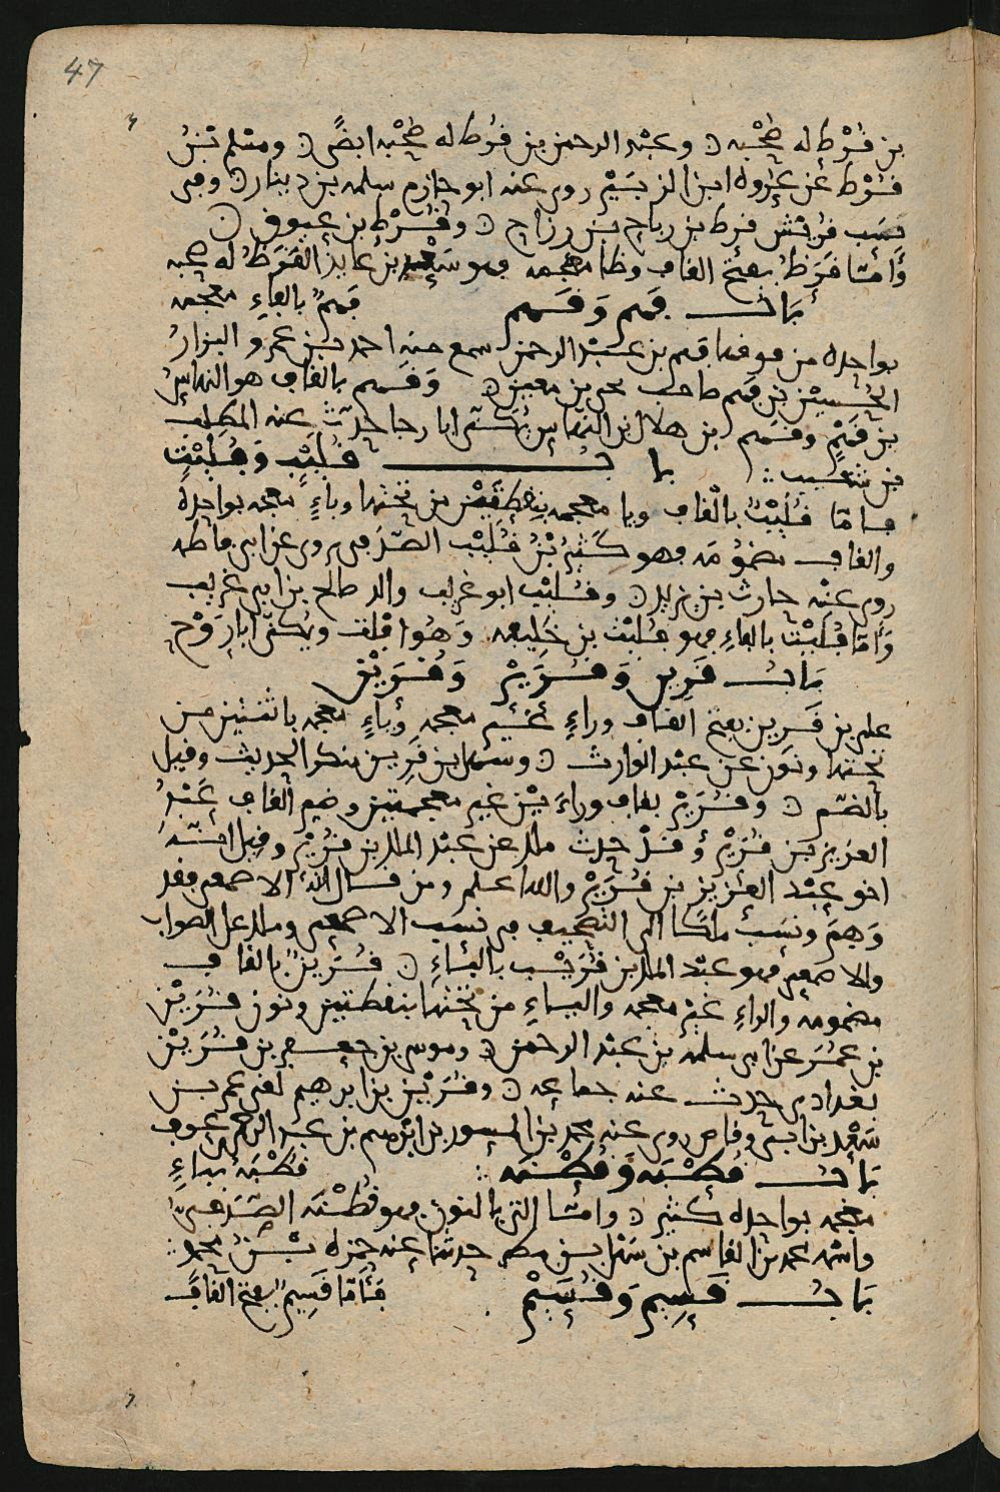 47
بن قُرْط له صُحْبه وعبد الرحمن بن قرط له صُحْبه ايضًا ومسلم بن
قُرْط عن عُرْوه ابن الزبير روى عنه ابو حازم سلمه بن دينار وفى
نسب قريش قرط بن رباح بن رزاح وقُرْط بن عبوق
وَأمّا قَرَظ بفتح القاف وظا معجمه فهو سعد بن عايذ القَرَظ له صحبه
باب فهم وقهم فهم بالفاء معجمه
بواحده من فوقها فهم بن عبد الرحمن سمع منه احمد بن عمرو البزار
الحسين بن فهم صاحب يحيى بن معين وقهم بالقاف هو النهاس
بن قهم وقهم بن هلال بن النهاس يُكنّى ابا رجا حدث عنه المطلب
بن شعيب
باب قُلَيْب وَفُلَيْت
فامّا قُلَيْبٌ بالْقاف ويا معجمه بنقطتين من تحتها وباءٍ معجمه بواحدهٍ
والقاف مضمُومَه فهو كَثِيْرُ بْنُ قُلَيْب الصّدَفى يروى عن ابى فاطمه
روى عنْه حارث بن يزيد وقُلَيْب ابو غريب والد صالح بن ابى غريب
وَأمّا فُلَيْت بالفاءِ فهو فُلَيْت بن خليفه وَهُو افْلت ويُكنّى ابا رَوْح
باب قَرِين وَقُرَيْر وَقُرَيْن
على بن قَرِين بفتح القاف وراءٍ غير معجمه وياءٍ معجمه باثنتين من
تحتها ونون عن عبْد الوارث وسهل بن قَرِين منكر الحديث وقيل
بالضّم وقُرَيْر بقاف وراءَيْن غير معجمتين وضم القاف عَبْدُ
العزيز بن قُرَيْر وقدْ حدث مالك عن عبْد الملك بن قُرَيْر وقيل انّه
اخو عبْد العزيز بن قُرَيْر والله اعلم ومن قال انه الاصمعى فقد
وَهِمَ ونَسَبَ مالكًا الى التصحيف فى نسب الاصمعى ومالك على الصواب
والاصمعى فهو عبْد الملك بن قُرَيْب بالباءِ قُرَيْنٌ بالقاف
مضمومه والراءِ غير معجمه والياءِ من تحتها بنقطتين ونون قُرَيْن
بن عُمَر عن ابى سلمه بن عبْد الرحمن وموسى بن جعفر بن قُرَيْن
بغدادى حدث عنه جماعه وقُرَيْن بن ابرهيم لقى عمر بن
سَعْد بن ابى وقاص روى عنه محمد بن المسور بن ابرهيم بن عبد الرحمن عوف
باب قُطْبَه وَقُطْنَه قُطْبَه بباءٍ
معجمه بواحده كثير وامّا التى بالنون فهو قُطْنَه الصّدَفى
واسمه محمد بن القاسم بن سهل بن مطر حدثنا عنه حمزه بْنُ محمد
بَابُ قَسِيم وَقُسَيْم فَأَمّا قَسِيم بفتح القاف